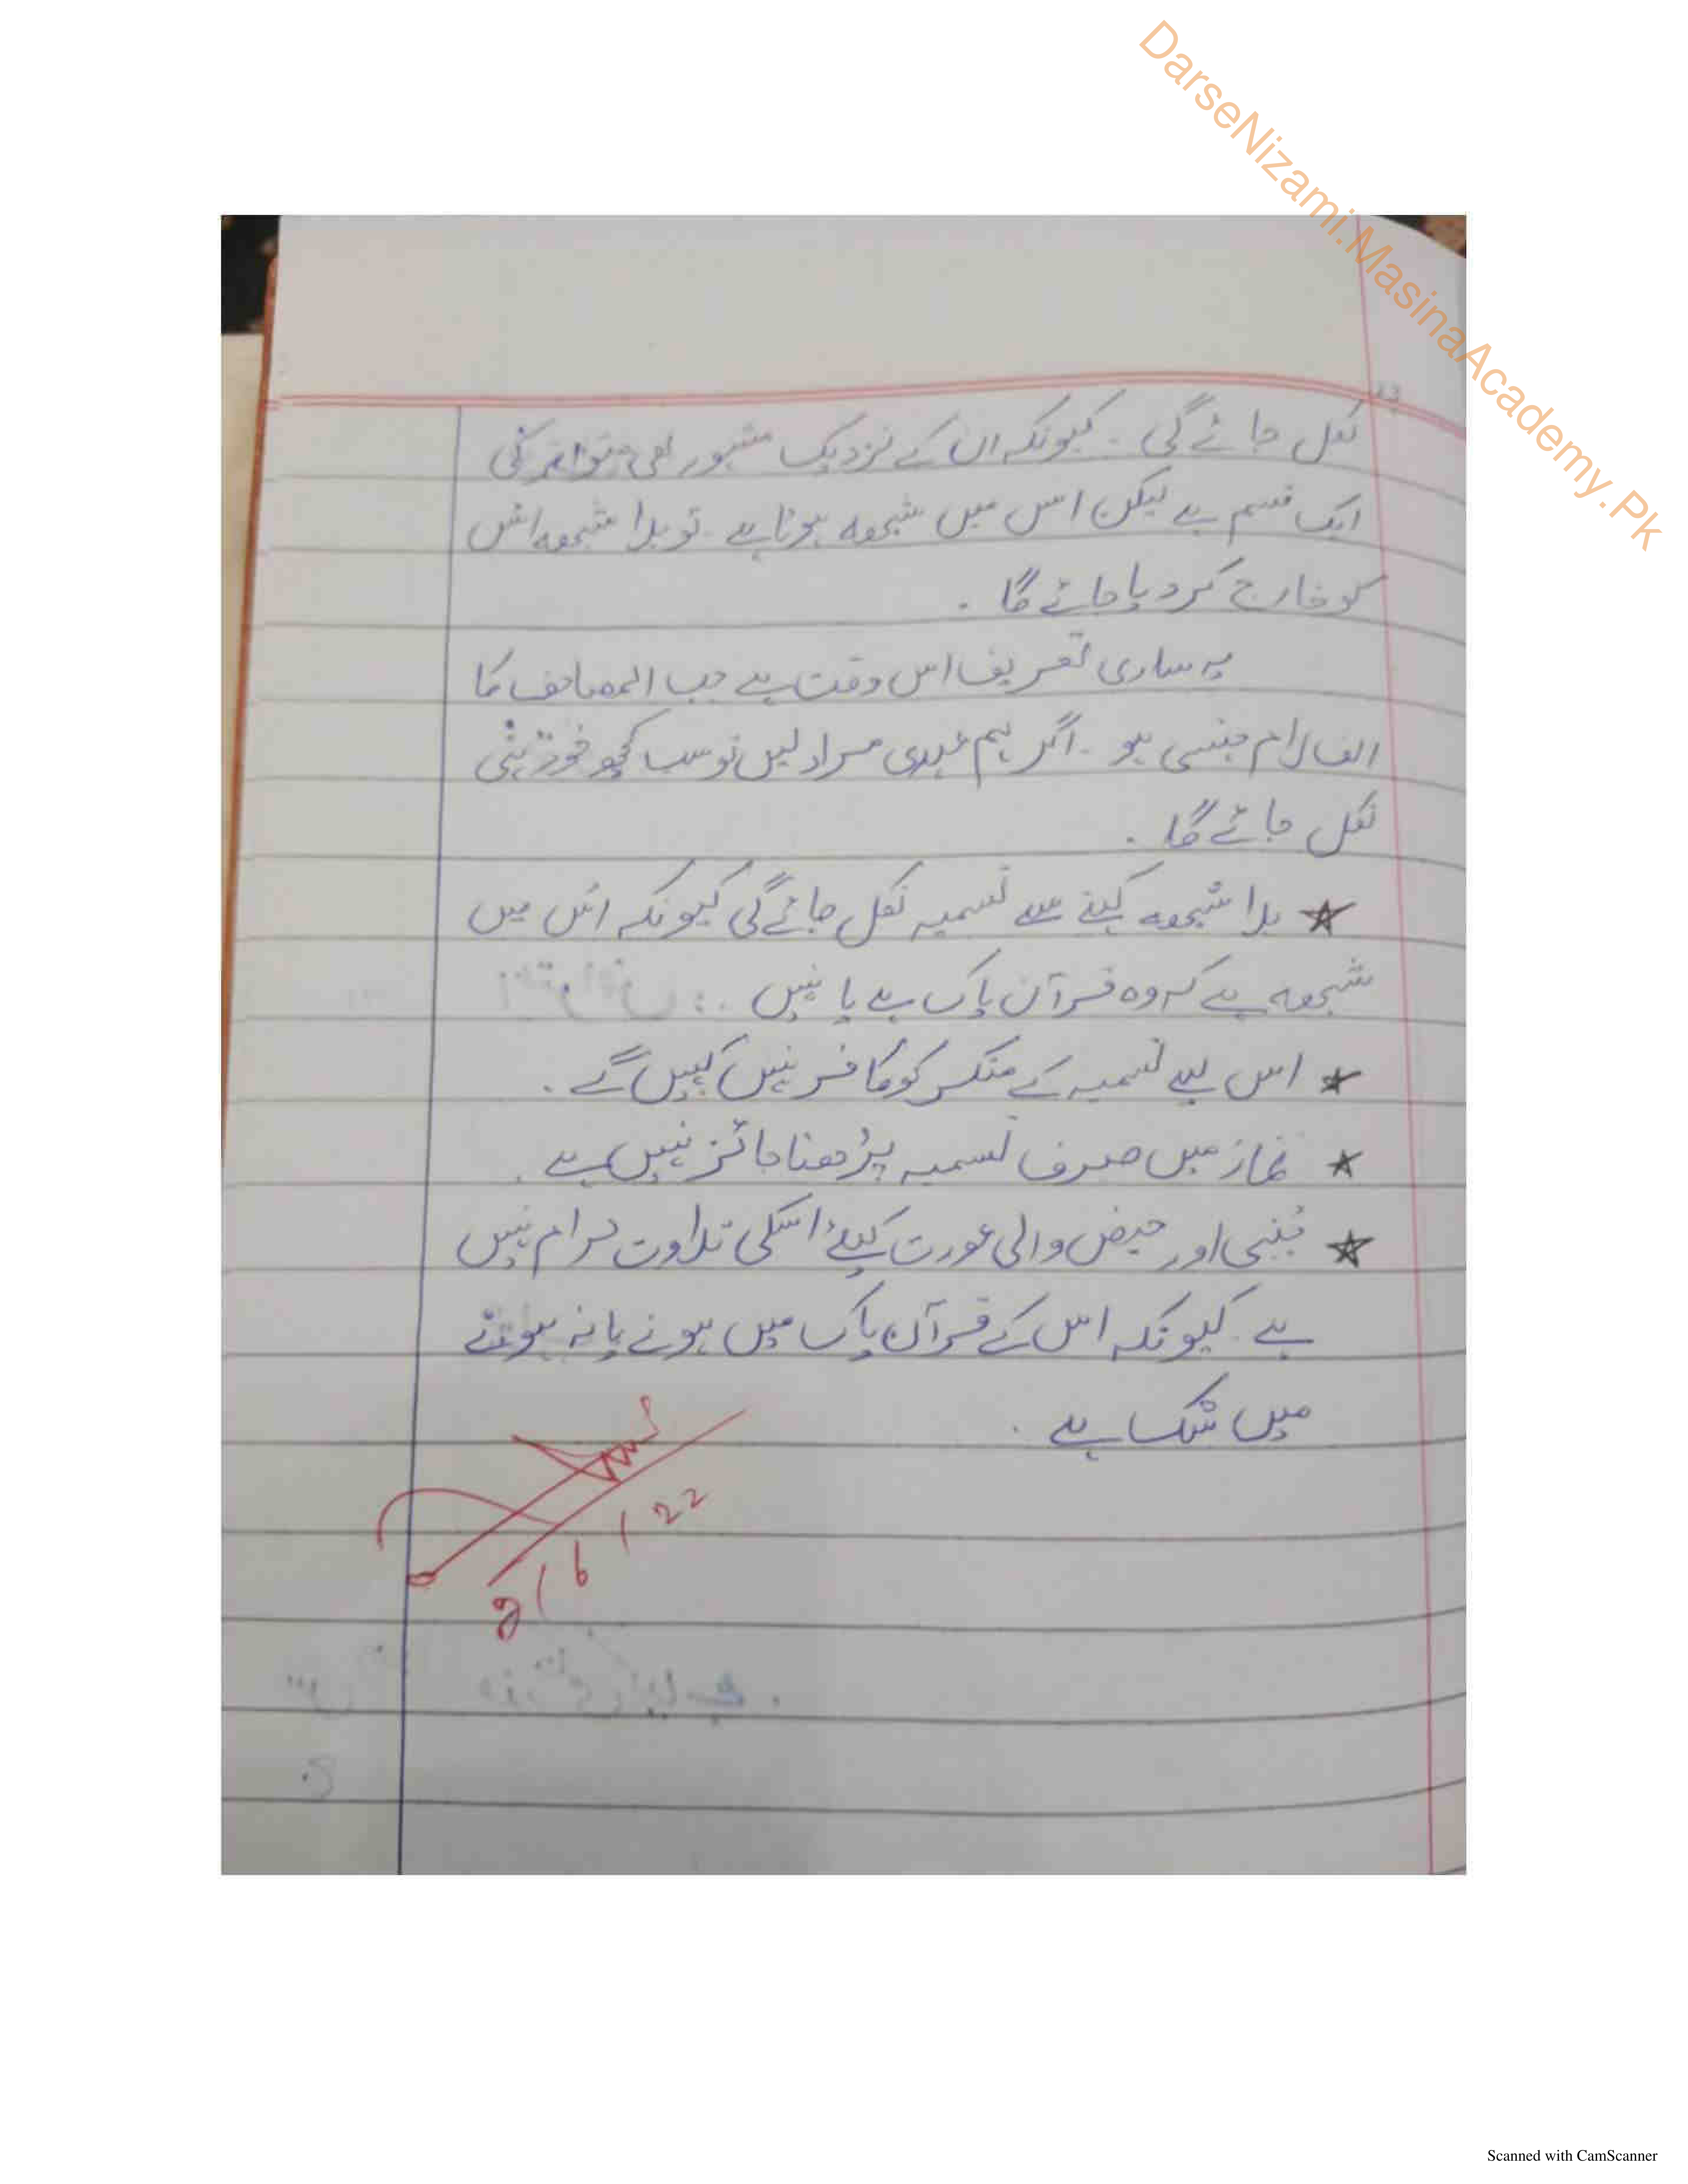 DarseNizami.MasinaAcademy.Pk
نکل جائے گی ۔ کیونکہ ان کے نزدیک مشہور بھی متواتر کی
ایک قسم ہے لیکن اس میں شبھہ ہوتا ہے ۔ تو بلا شبھہ اس
کو خارج کر دیا جائے گا ۔
یہ ساری تعریف اس وقت ہے جب المصاحف کا
الف لام جنسی ہو ۔ اگر ہم عہدی مراد لیں تو سب کچھ خود ہی
نکل جائے گا ۔
★ بلا شبھہ کہنے سے تسمیہ نکل جائے گی کیونکہ اس میں
شبھہ ہے کہ وہ قرآن پاک ہے یا نہیں ۔
★ اس لیے تسمیہ کے منکر کو کافر نہیں کہیں گے ۔
★ نماز میں صرف تسمیہ پڑھنا جائز نہیں ہے ۔
★ جُنبی اور حیض والی عورت کیلئے اسکی تلاوت حرام نہیں
ہے ۔ کیونکہ اس کے قرآن پاک میں ہونے یا نہ ہونے
میں شک ہے ۔
Scanned with CamScanner